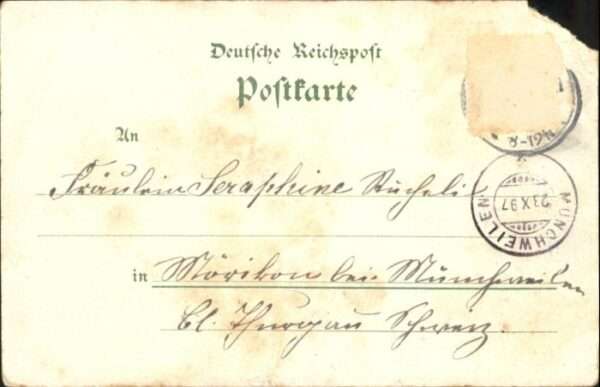 Deutsche Reichspost
Postkarte
An
Fräulein Seraphine Rücheli
in Mörikon bei Münchweilen
Ct. Thurgau Schweiz.
MÜNCHWEILEN
23.X.97